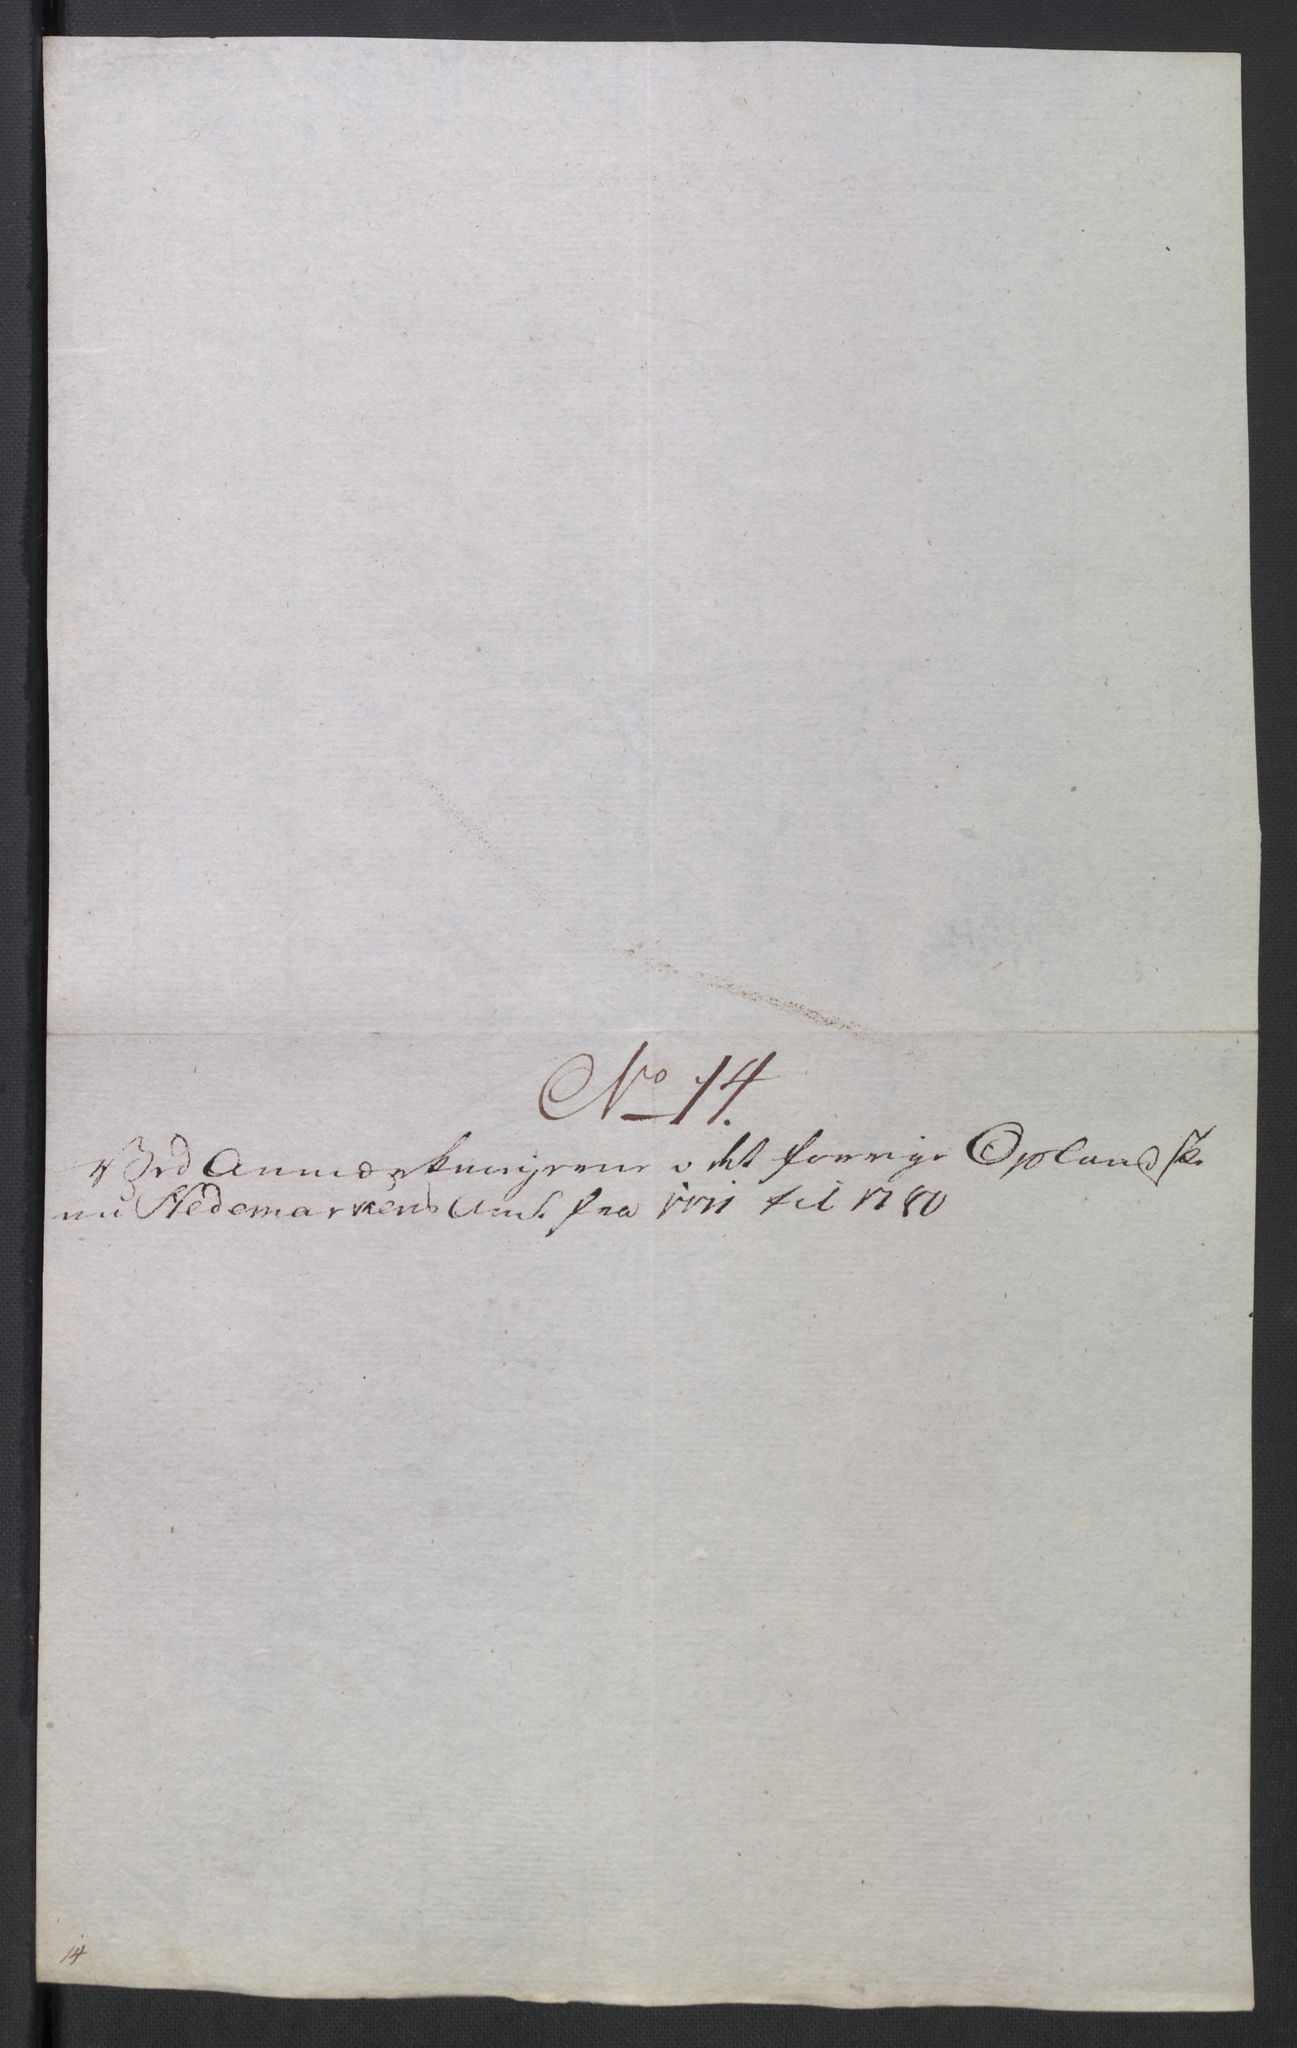 No 14.
Ved Anmærkningerne i det forrige Oplandske
nu Hedemarkens Amt fra 1771 til 1780
14